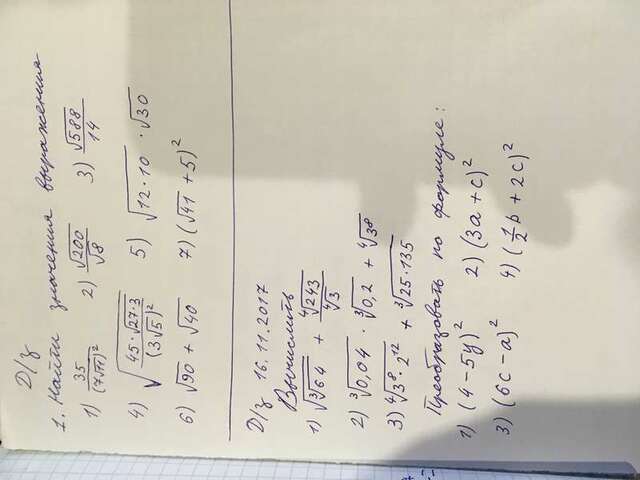 Д/з
1. Найти значения выражения
1) 35/(7√11)² 2) √200/√8 3) √588/14
4) √(45·√(27·3)/(3√5)²) 5) √(12·10) · √30
6) √90 + √40 7) (√41 + 5)²
Д/з 16.11.2017
Вычислить
1) √(∛64) + ∜243/∜3
2) ∛0,04 · ∛0,2 + ∜(3⁸)
3) ∜(3⁸·2¹²) + ∛(25·135)
Преобразовать по формуле:
1) (4-5y)² 2) (3a+c)²
3) (6c-a)² 4) (1/2b + 2c)²